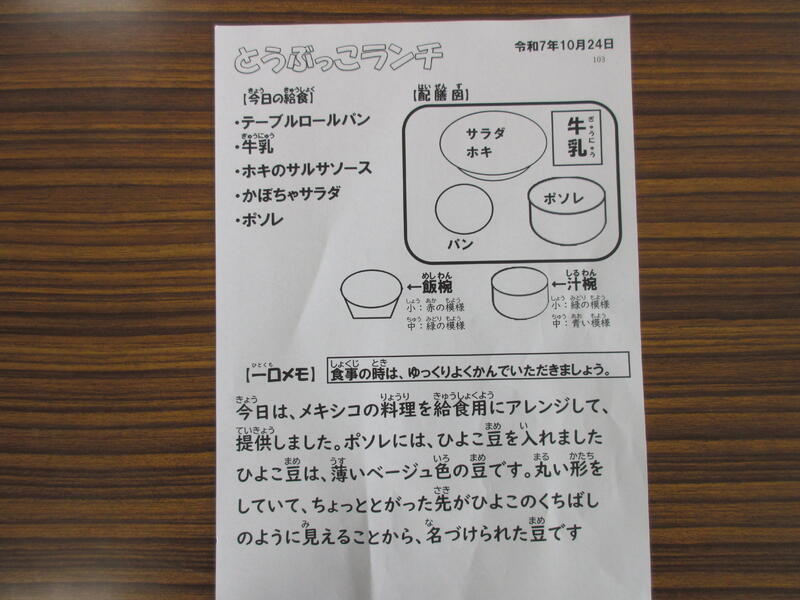 とうぶっこランチ
令和7年10月24日
103
【今日の給食】
・テーブルロールパン
・牛乳
・ホキのサルサソース
・かぼちゃサラダ
・ポソレ
【配膳図】
サラダ
ホキ
牛乳
ポソレ
パン
←飯椀
小：赤の模様
中：緑の模様
←汁椀
小：緑の模様
中：青い模様
【一口メモ】
食事の時は、ゆっくりよくかんでいただきましょう。
今日は、メキシコの料理を給食用にアレンジして、
提供しました。ポソレには、ひよこ豆を入れました
ひよこ豆は、薄いベージュ色の豆です。丸い形を
していて、ちょっととがった先がひよこのくちばし
のように見えることから、名づけられた豆です